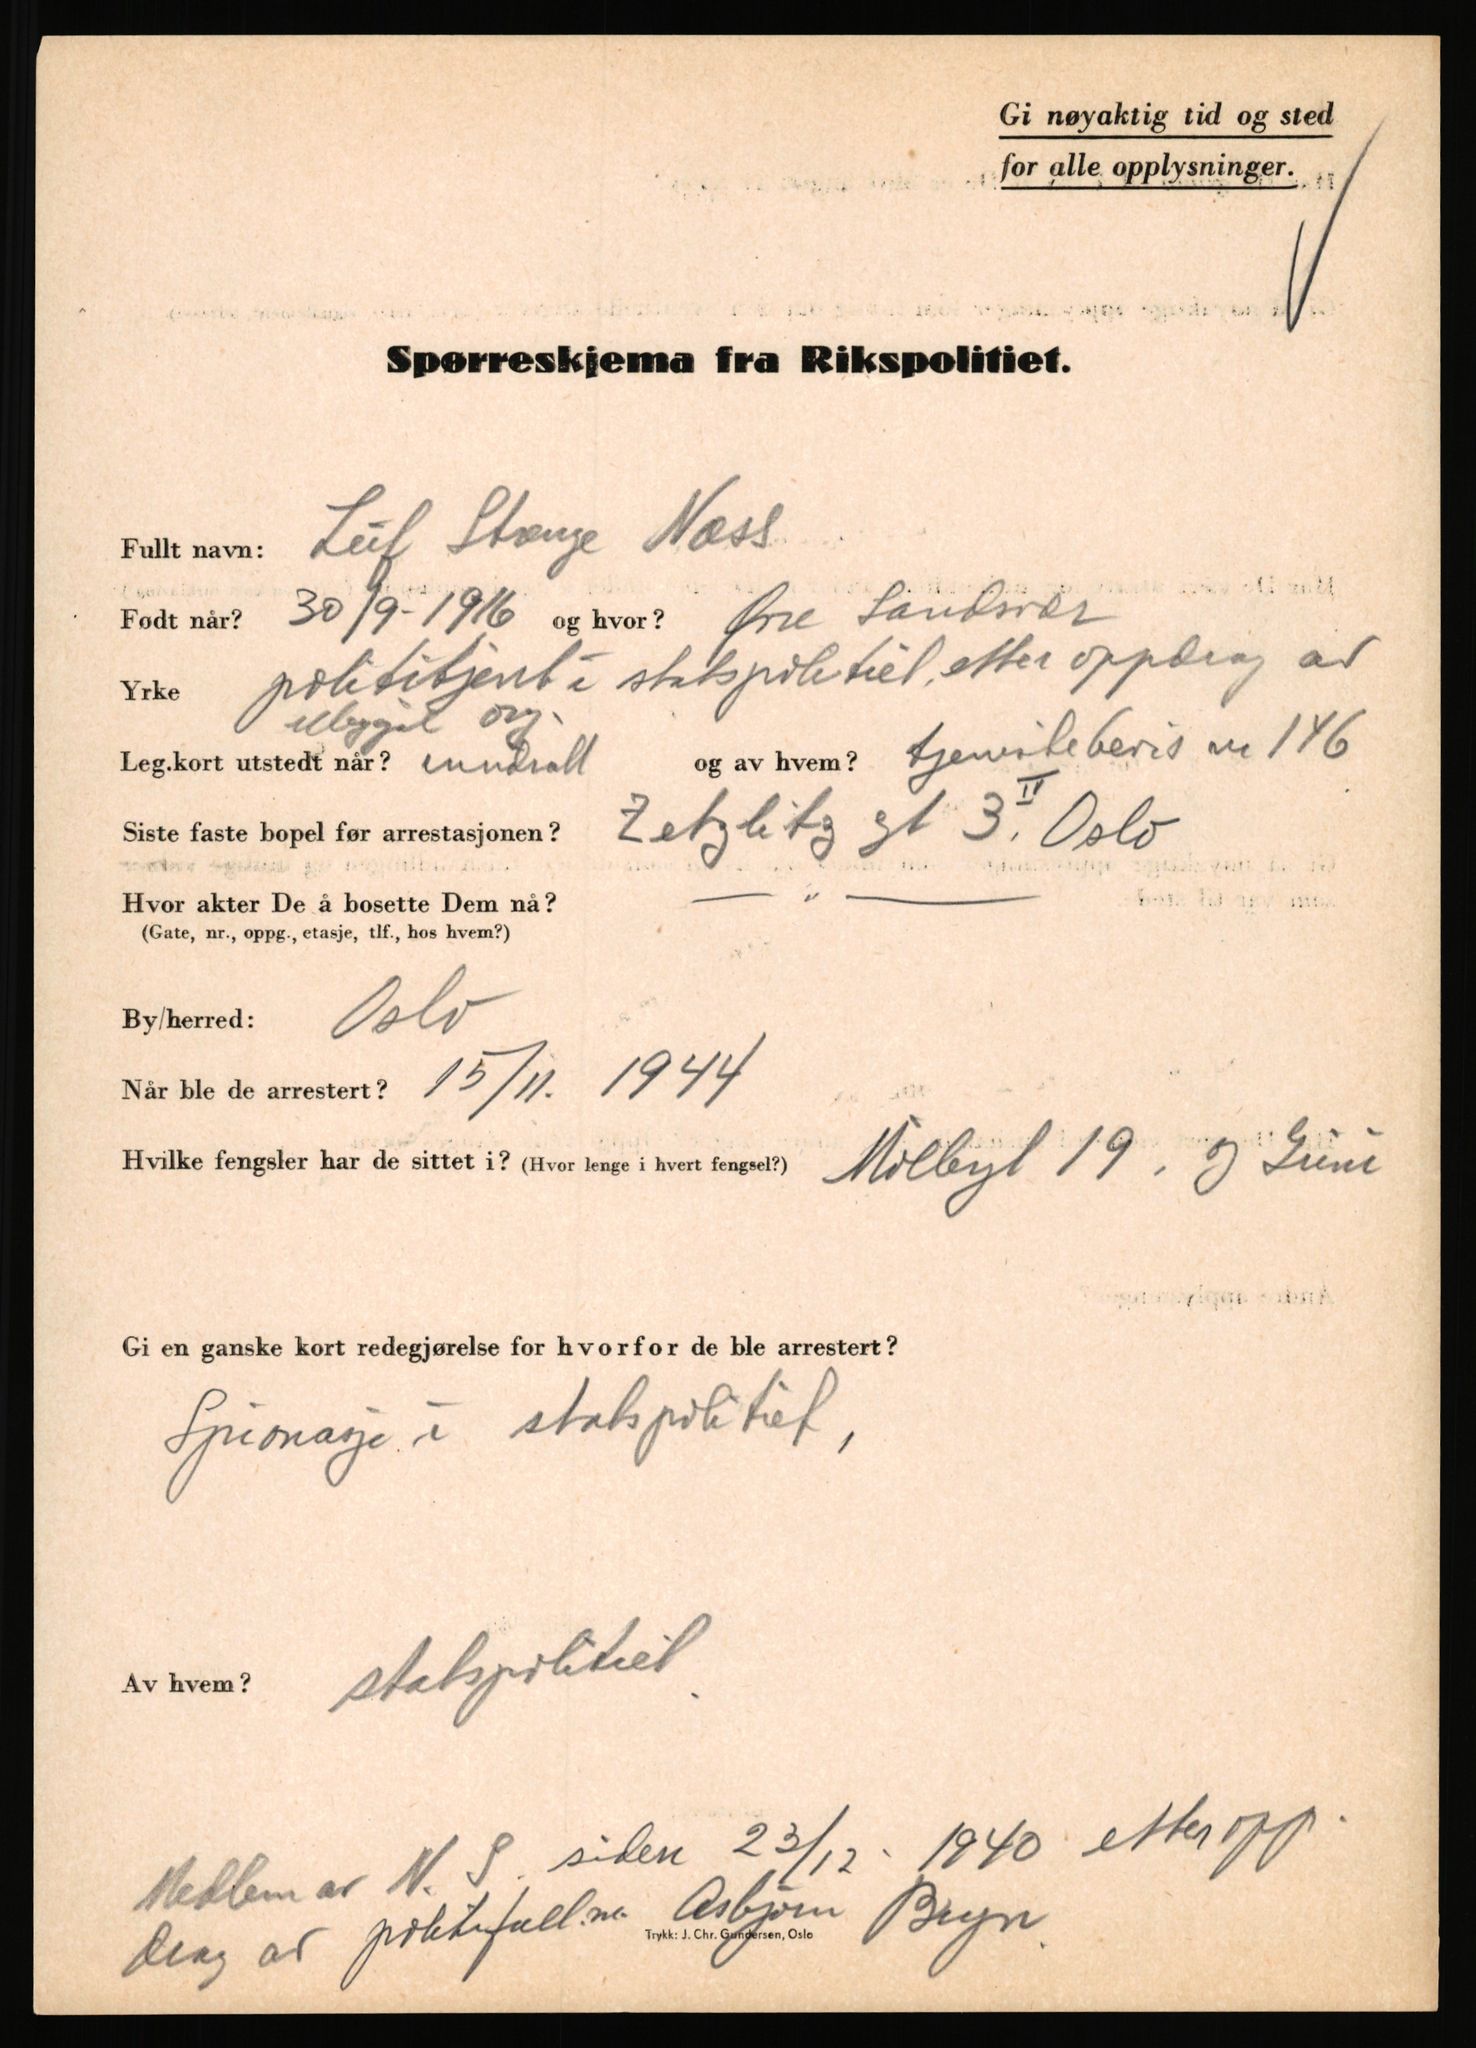 Gi nøyaktig tid og sted
for alle opplysninger.
Spørreskjema fra Rikspolitiet.
Fullt navn: Leif Stange Næss
Født når? 30/9-1916 og hvor? Øvre Sandsvær
Yrke polititjent i statspolitiet, etter oppdrag av
illegal org.
Leg.kort utstedt når? inndratt og av hvem? tjenestebevis nr 146
Siste faste bopel før arrestasjonen? Zetzlitz gt 3 II. Oslo
Hvor akter De å bosette Dem nå? — " —
(Gate, nr., oppg., etasje, tlf., hos hvem?)
By/herred: Oslo
Når ble de arrestert? 15/11. 1944
Hvilke fengsler har de sittet i? (Hvor lenge i hvert fengsel?) Møllergt 19, og Grini
Gi en ganske kort redegjørelse for hvorfor de ble arrestert?
Spionasje i statspolitiet,
Av hvem? statspolitiet.
Medlem av N. S. siden 23/12. 1940 etter opp-
drag av politifullm. Asbjørn Bryn.
Trykk: J. Chr. Gundersen, Oslo